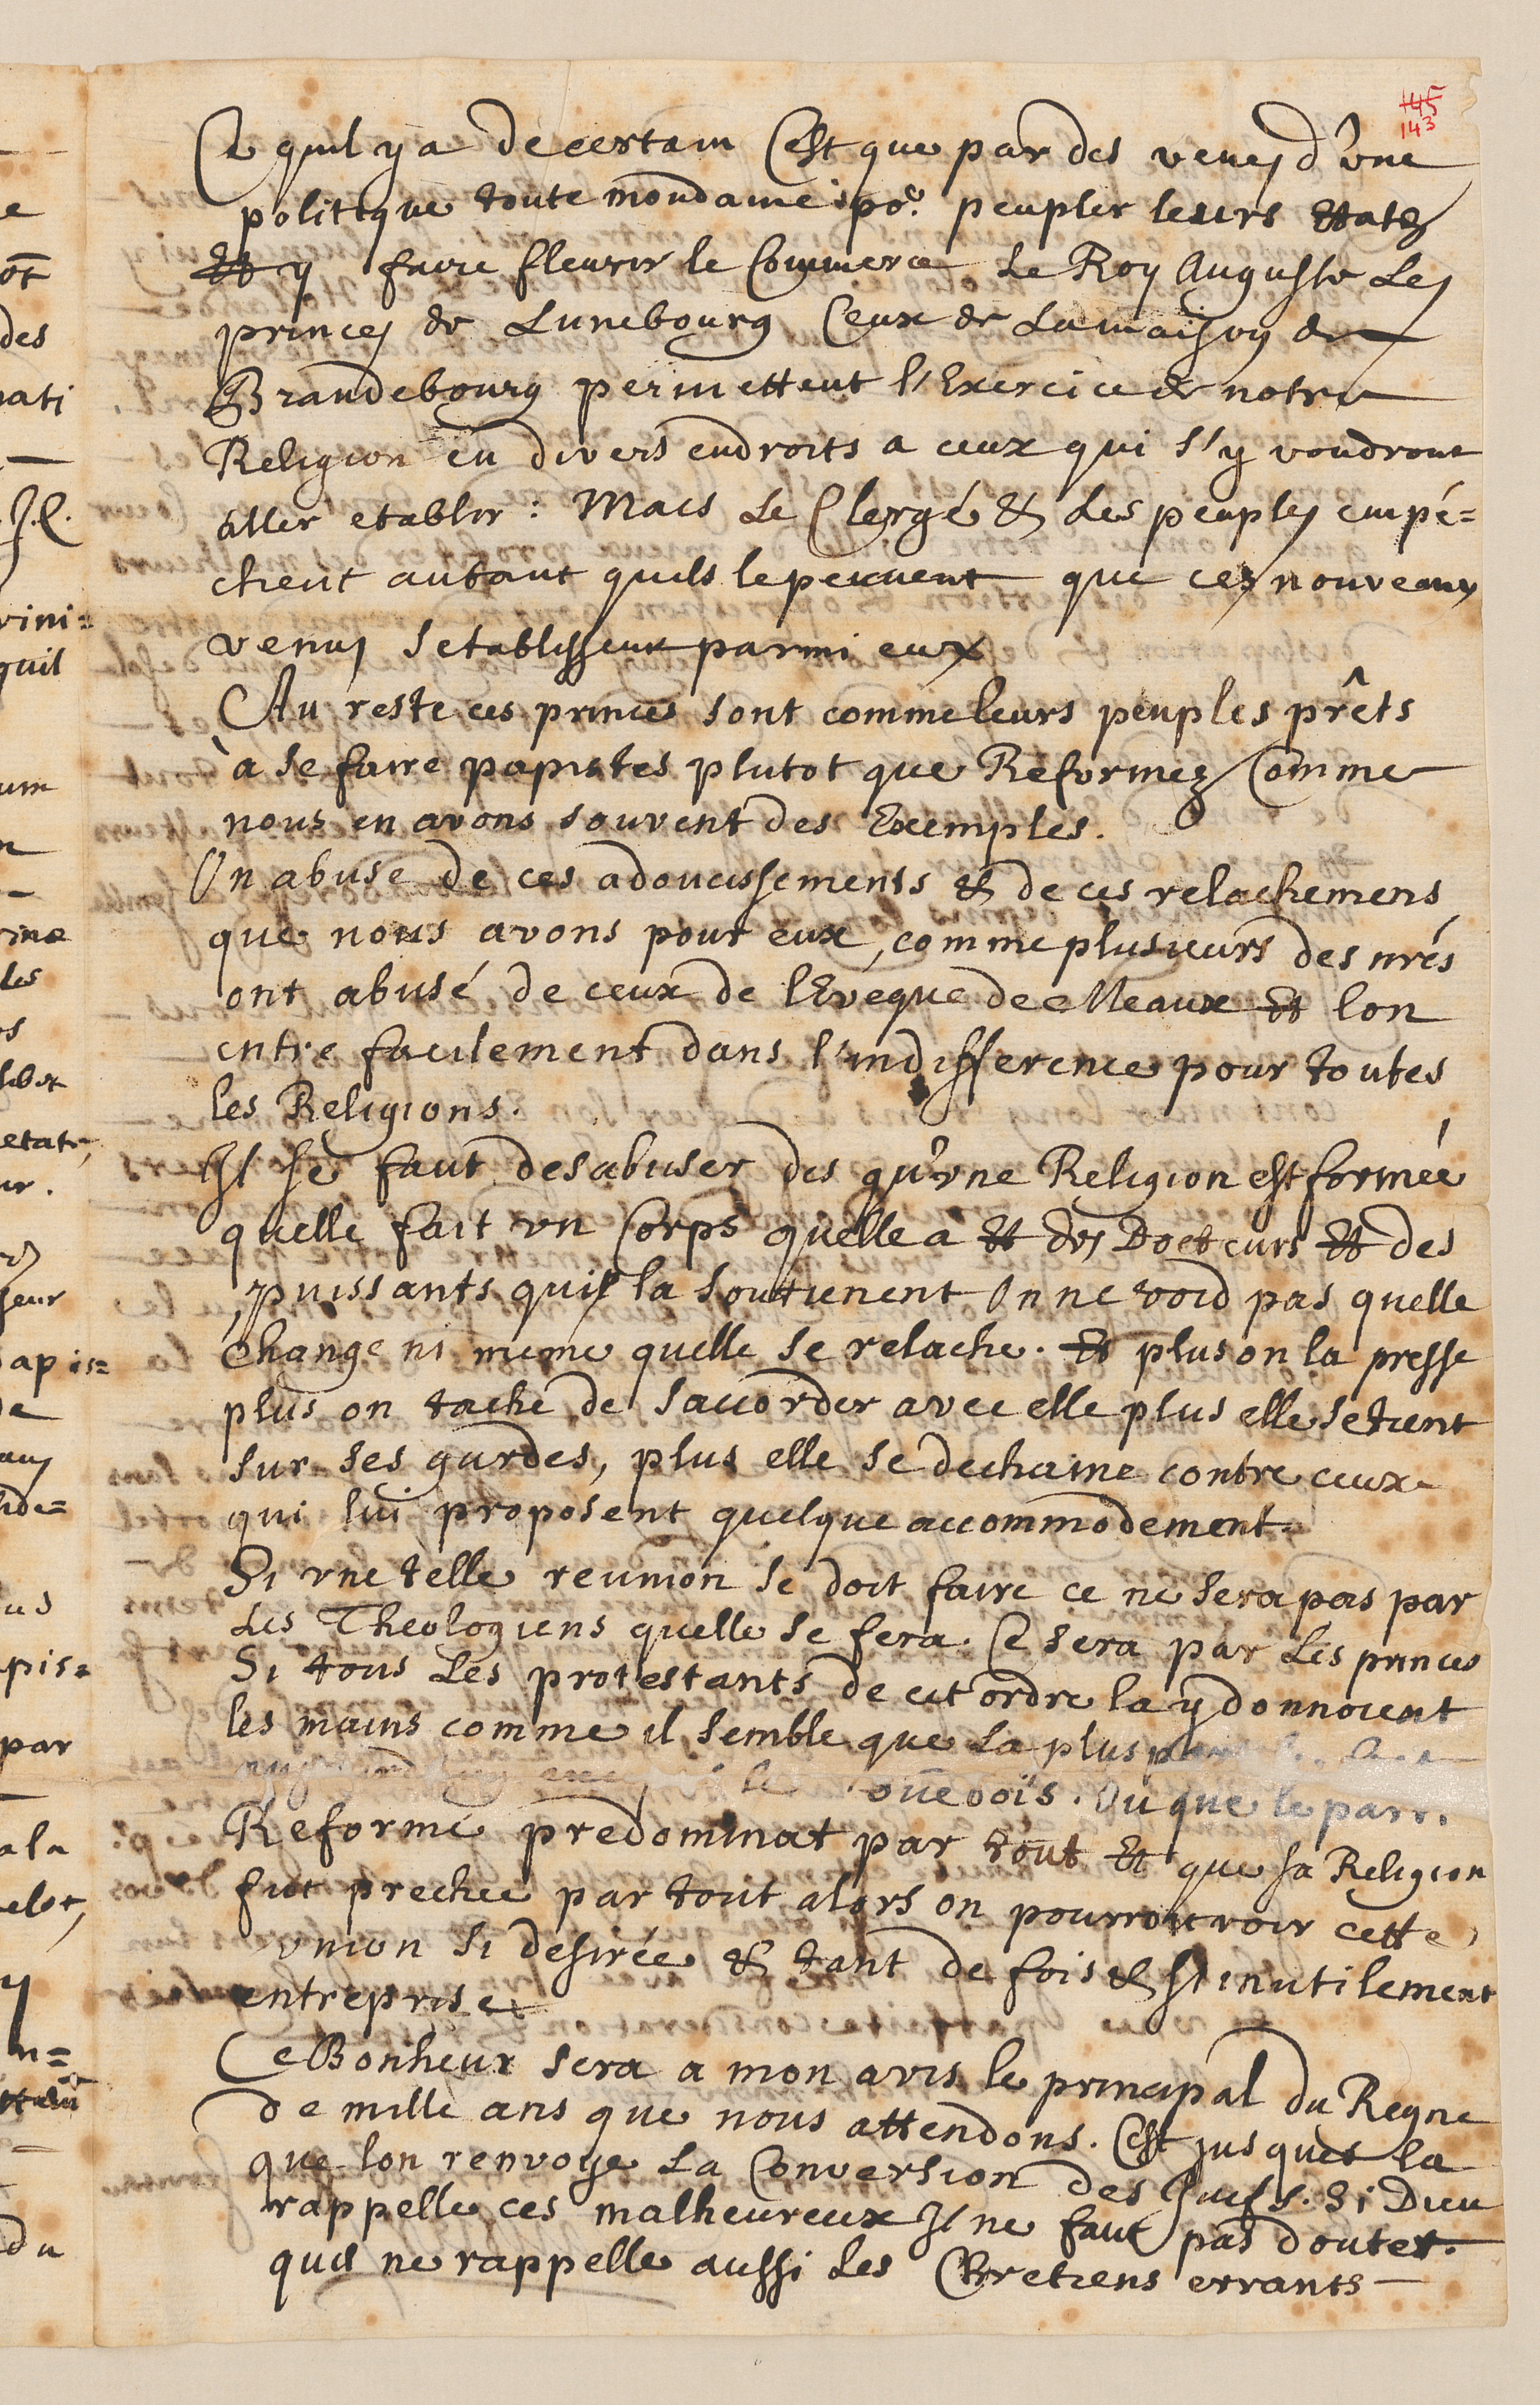 145
143
Ce quil y a de certain Cest que par des veues d'une
politique toute mondaine po.r peupler leurs Etats
Et y faire fleurir le Commerce Le Roy Auguste Les
princes de Lunebourg Ceux de La maison de
Brandebourg permettent l'Exercice de notre
Religion en divers endroits a ceux qui s'y voudront
aller etablir : Mais Le Clergé & Les peuples empé=
chent autant quils le peuvent que ces nouveaux
venus setablissent parmi eux
Au reste ces princes sont comme leurs peuples prêts
à se faire papistes plutot que Reformez Comme
nous en avons souvent des Exemples.
On abuse de ces adoucissements & de ces relachemens
que nous avons pour eux, comme plusieurs des nrés
ont abusé de ceux de lEveque de Meaux Et lon
entre facilement dans l'indifference pour toutes
les Religions.
Il se faut desabuser des qu'vne Religion est formée
quelle fait vn Corps quelle a Et des Docteurs Et des
puissants qui la soutienent On ne void pas quelle
change ni meme quelle se relache. Et plus on la presse
plus on tache de saccorder avec elle plus elle se tient
sur ses gardes, plus elle se dechaine contre ceux
qui lui proposent quelque accommodement.
Si vne telle reunion se doit faire ce ne sera pas par
Les Theologiens quelle se fera. Ce sera par Les princes
Si tous Les protestants de cet ordre la y donnoient
les mains comme il semble que La plus
Ou que le
Reformé predominat par tout Et que sa Religion
fut prechée par tout alors on pourroit voir cette
vnion si desirée & tant de fois & si inutilement
entreprise
Ce Bonheur sera a mon avis le principal du Regne
de mille ans que nous attendons. Cest jusques la
que lon renvoye La Conversion des Juifs. Si Dieu
rappelle ces malheureux Il ne faut pas douter
quil ne rappelle aussi Les Chretiens errants